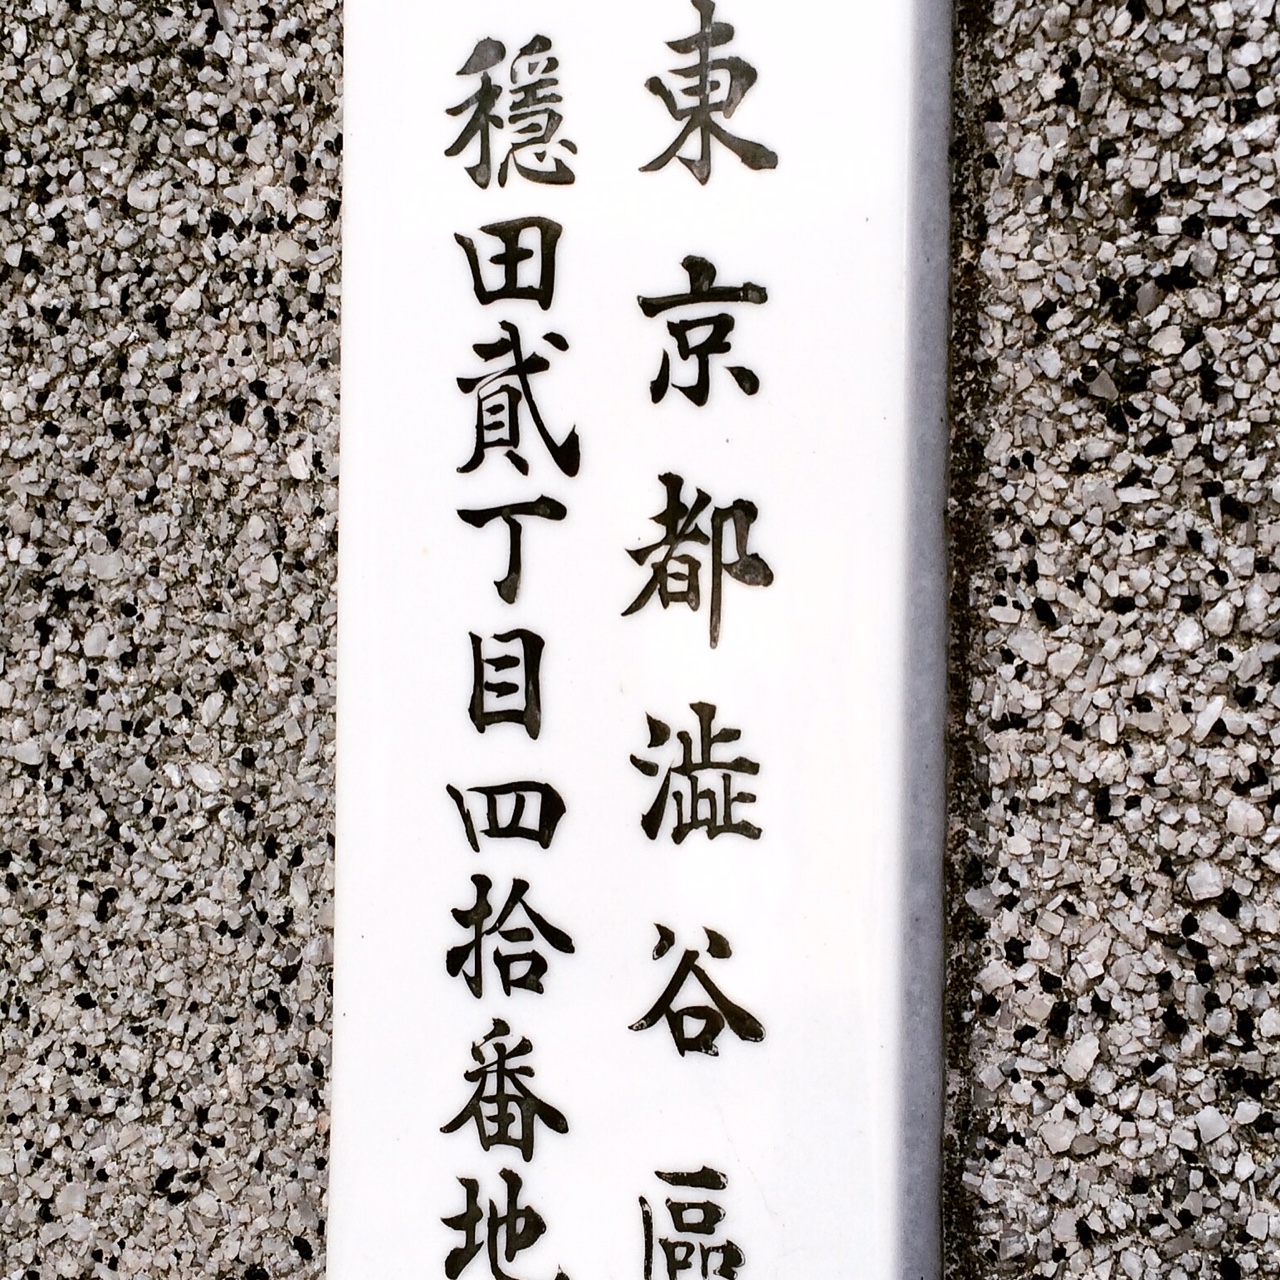 東京都澁谷區
穩田貳丁目四拾番地